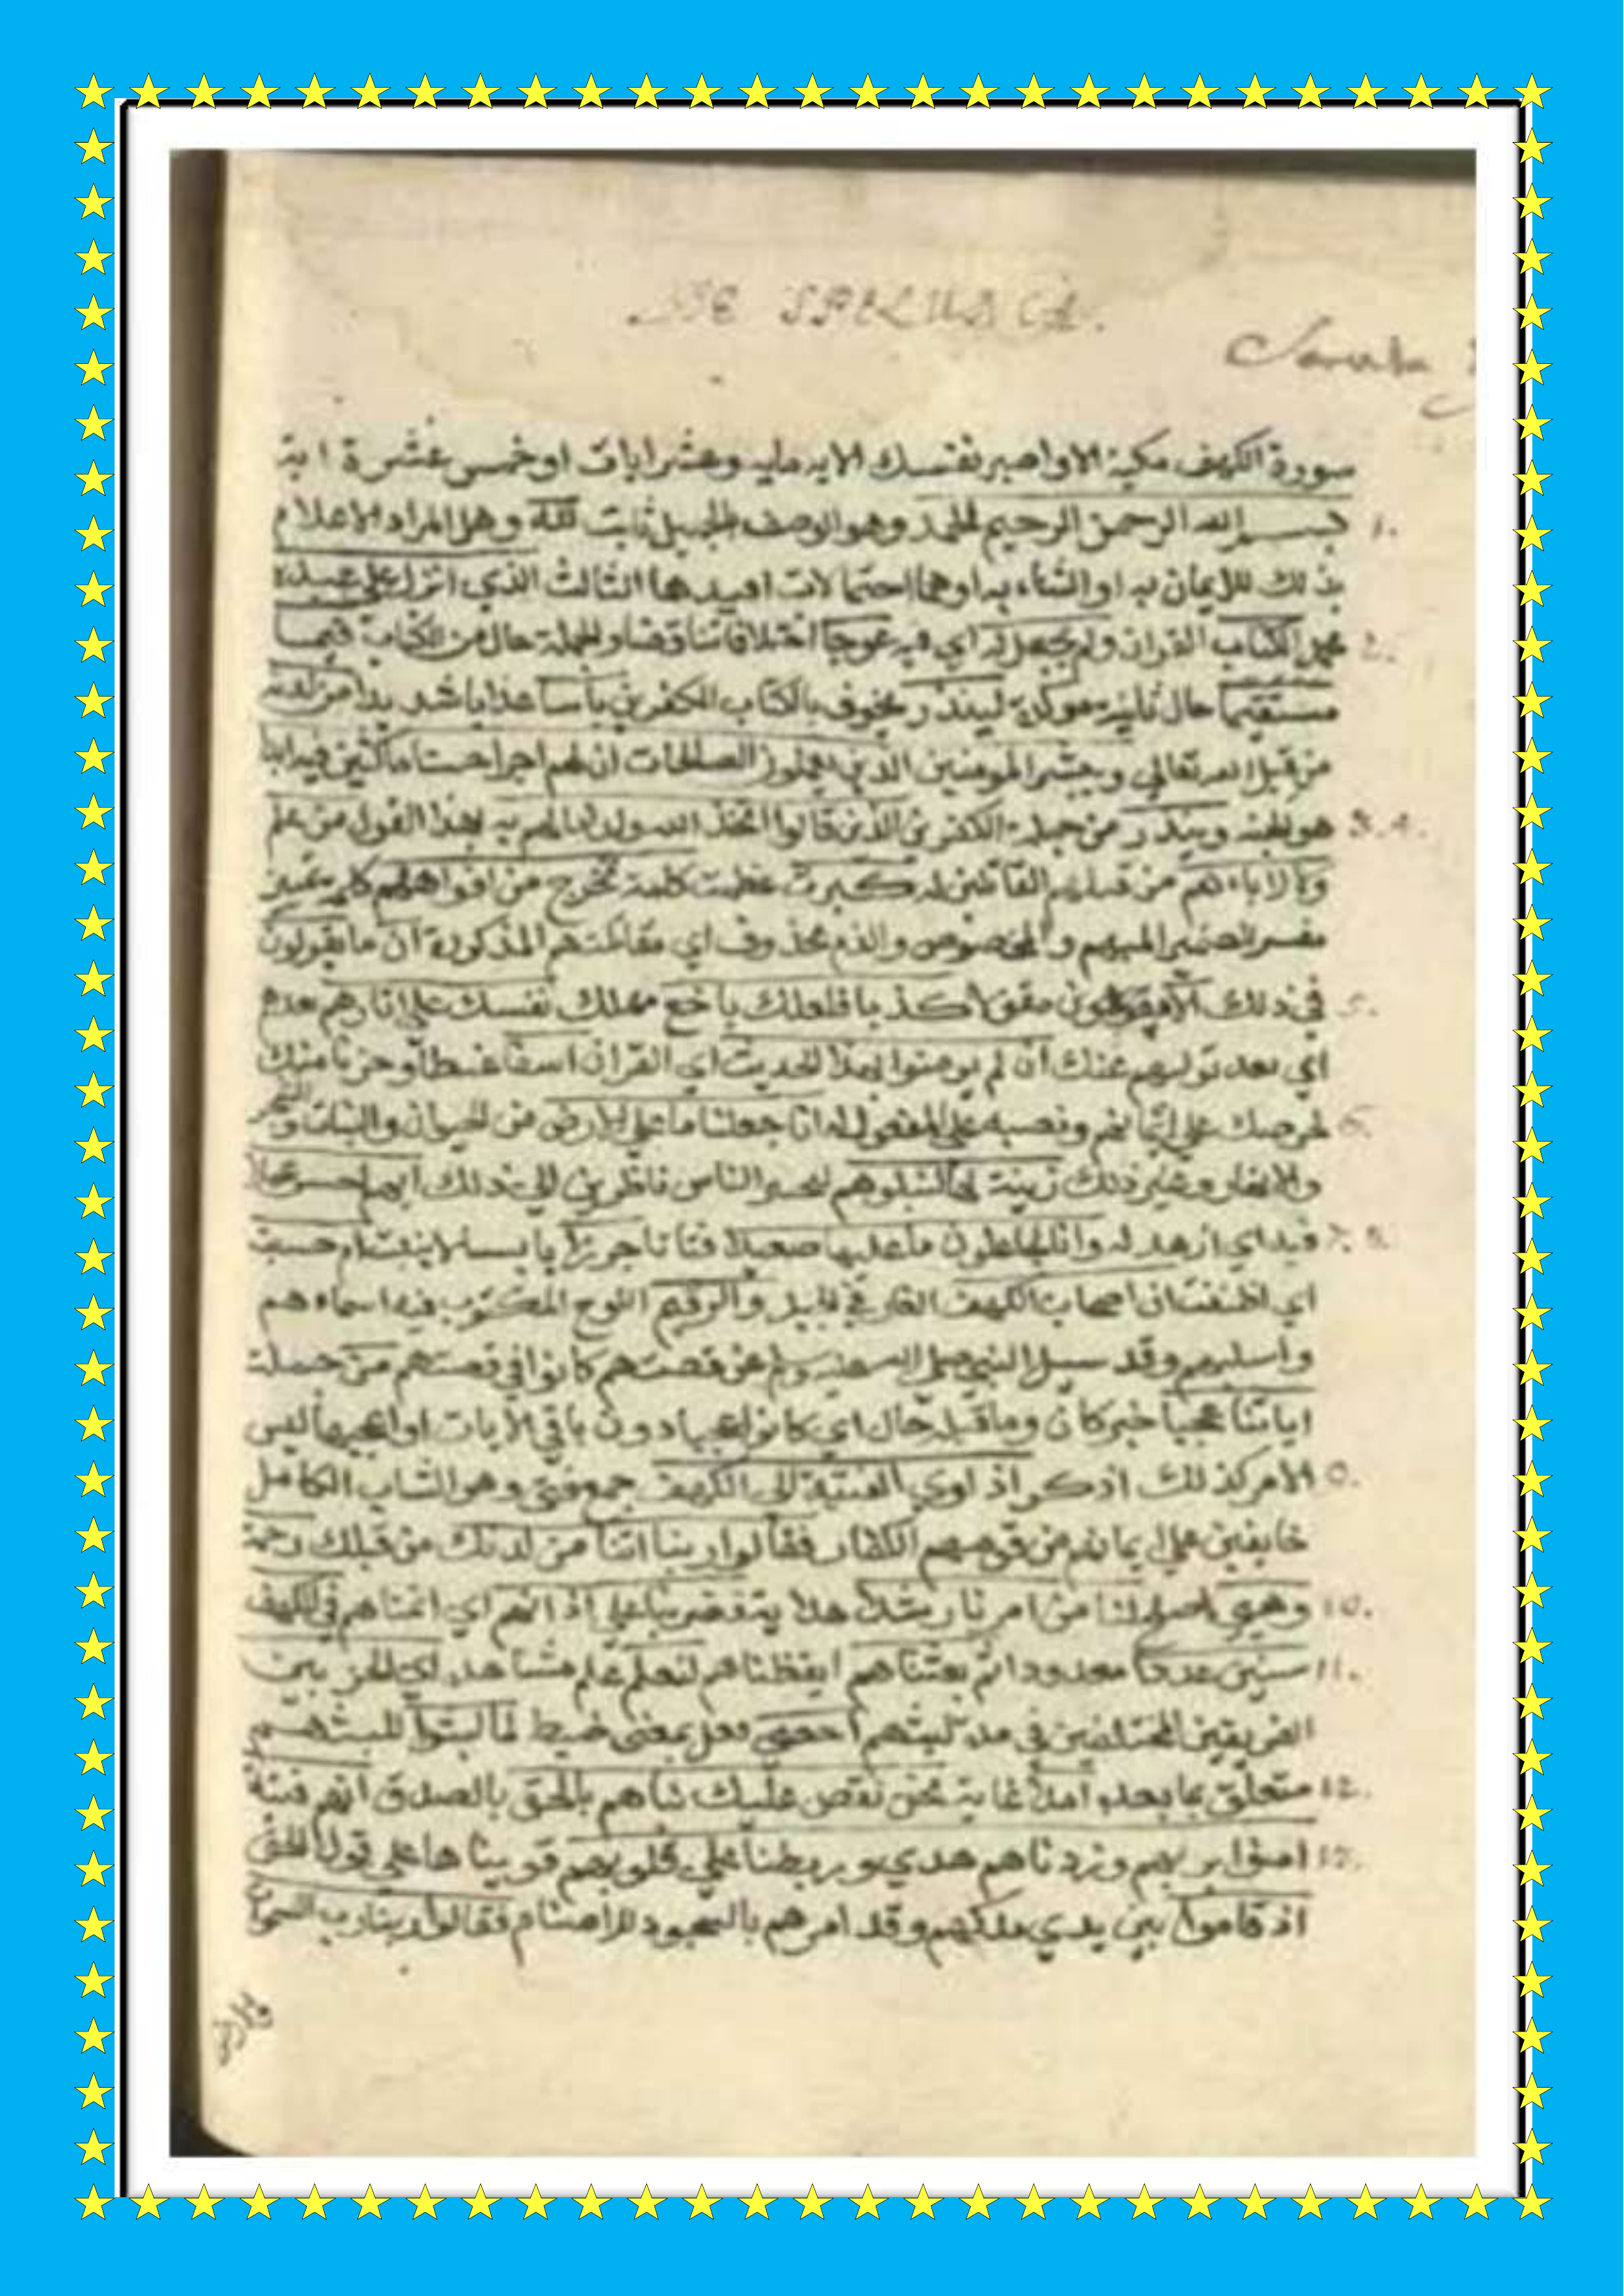 DE SPELUNCA.
سورة الكهف مكية الا واصبر نفسك الاية ماية وعشر ايات او خمس عشرة اية
1. بسم الله الرحمن الرحيم الحمد وهو الوصف بالجميل ثابت لله وهل المراد الاعلام
بذلك للايمان به او الثناء به اوهما احتمالات افيدها الثالث الذي انزل علي عبده
2. محمد الكتاب القران ولم يجعل له اي فيه عوجا اختلافا تناقضا والجملة حال من الكتاب قيما
مستقيما حال ثانية موكدة لينذر يخوف بالكتاب الكفرين باسا عذابا شديدا من لدنه
من قبل الله تعالي ويبشر المومنين الذين يعملون الصلحات ان لهم اجرا حسنا ماكثين فيه ابدا
3. 4. هو الجنة وينذر من جملة الكفرين الذين قالوا اتخذ الله ولدا ما لهم به بهذا القول من علم
ولا لاباءهم من قبلهم القائلين له كبرت عظمت كلمة تخرج من افواههم كلمة تمييز
مفسر للضمير المبهم والمخصوص والذم محذوف اي مقالتهم المذكورة ان ما يقولون
5. في ذلك الا مقولا كذبا فلعلك باخع مهلك نفسك علي اثارهم بعدهم
اي بعد توليهم عنك ان لم يومنوا بهذا الحديث اي القران اسفا غيظا وحزنا منك
6. لحرصك علي ايمانهم ونصبه علي المفعول له انا جعلنا ما علي الارض من الحيوان والنبات والشجر
والانهار وغير ذلك زينة لها لنبلوهم لنختبر الناس ناظرين الي ذلك ايهم احسن عملا
7. 8. فيه اي ازهد له وانا لجاعلون ما عليها صعيدا فتاتا جرزا يابسا لا ينبت ام حسبت
اي اظننت ان اصحاب الكهف الغار في الجبل والرقيم اللوح المكتوب فيه اسماءهم
وانسابهم وقد سيل النبي صلي الله عليه وسلم عن قصتهم كانوا في قصتهم من جملة
اياتنا عجبا خبر كان وما قبله حال اي كانوا عجبا دون باقي الايات او اعجبها ليس
9. الامر كذلك اذكر اذ اوي الفتية الي الكهف جمع فتي وهو الشاب الكامل
خايفين علي ايمانهم من قومهم الكفار فقالوا ربنا اتنا من لدنك من قبلك رحمة
10. وهيي اصلح لنا من امرنا رشدا هداية فضربنا علي اذانهم اي انمناهم في الكهف
11. سنين عددا معدودا ثم بعثناهم ايقظناهم لنعلم علم مشاهدة اي الحزبين
الفريقين المختلفين في مدة لبثهم احصي فعل بمعني ضبط لما لبثوا للبثهم
12. متعلق بما بعده امدا غاية نحن نقص عليك نباهم بالحق بالصدق انهم فتية
13. امنوا بربهم وزدناهم هدي وربطنا علي قلوبهم قويناها علي قول الحق
اذ قاموا بين يدي ملكهم وقد امرهم بالسجود للاصنام فقالوا ربنا رب السموات